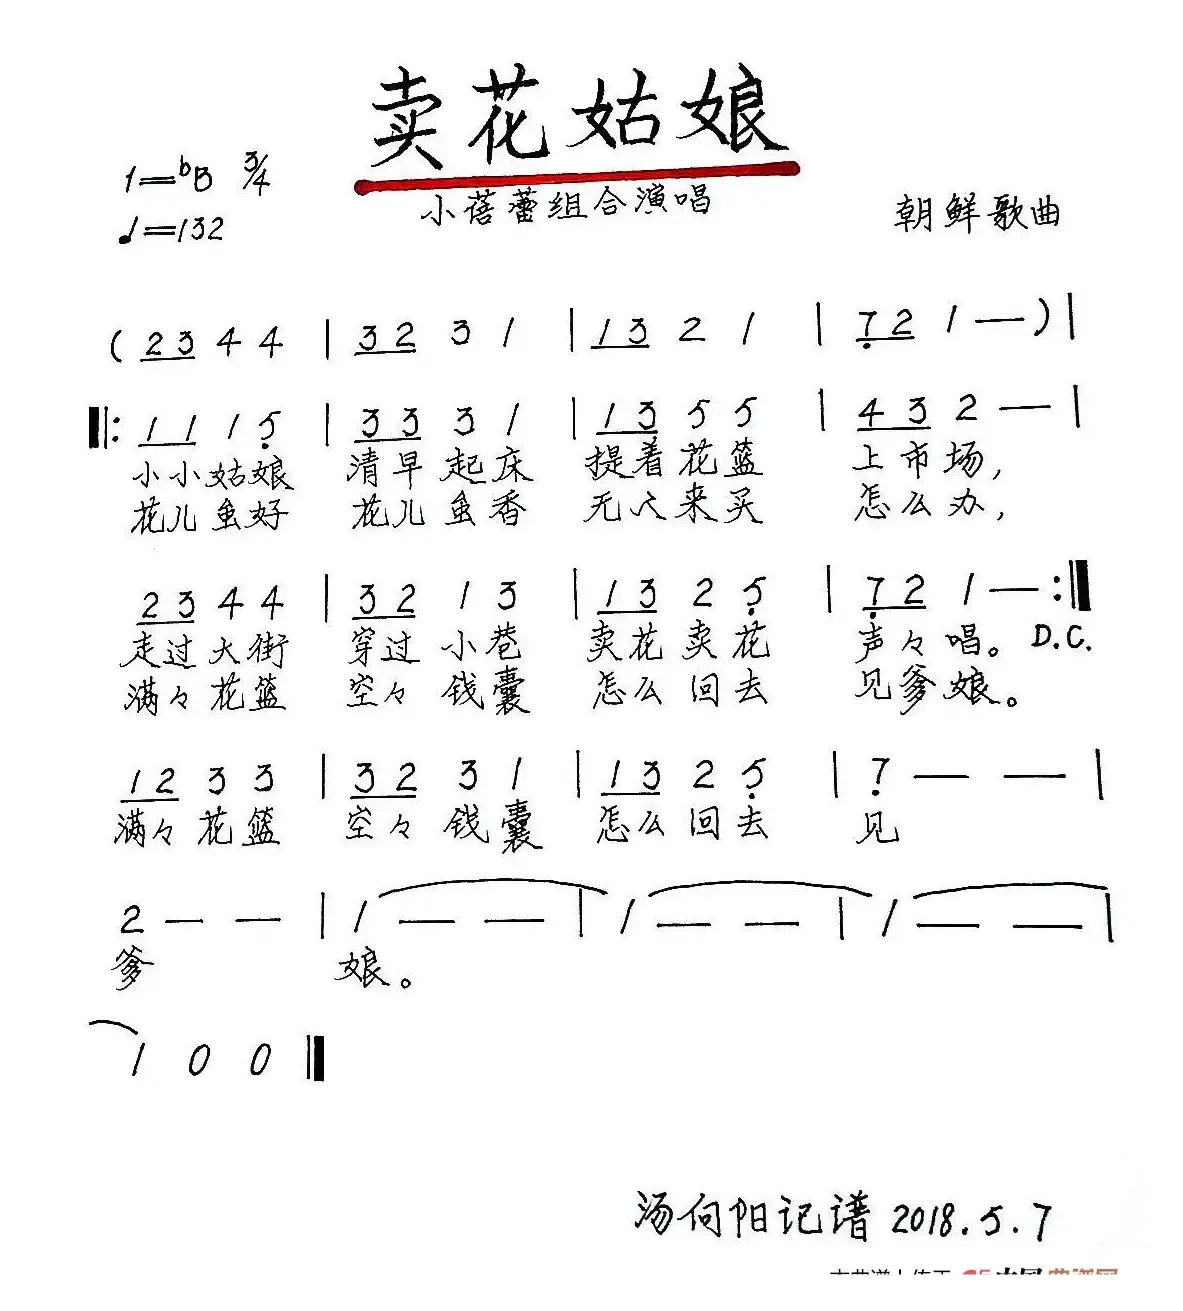 卖花姑娘
1=♭B 3/4
小蓓蕾组合演唱
♩=132
朝鲜歌曲
( 2 3 4 4 | 3 2 3 1 | 1 3 2 1 | 7 2 1 — ) |
‖: 1 1 1 5 | 3 3 3 1 | 1 3 5 5 | 4 3 2 — |
小小姑娘 清早起床 提着花篮 上市场，
花儿虽好 花儿虽香 无人来买 怎么办，
2 3 4 4 | 3 2 1 3 | 1 3 2 5 | 7 2 1 — :‖
走过大街 穿过小巷 卖花卖花 声々唱。 D.C.
满々花篮 空々钱囊 怎么回去 见爹娘。
1 2 3 3 | 3 2 3 1 | 1 3 2 5 | 7 — — |
满々花篮 空々钱囊 怎么回去 见
2 — — | 1 — — | 1 — — | 1 — — |
爹 娘。
1 0 0 ‖
汤向阳记谱 2018.5.7